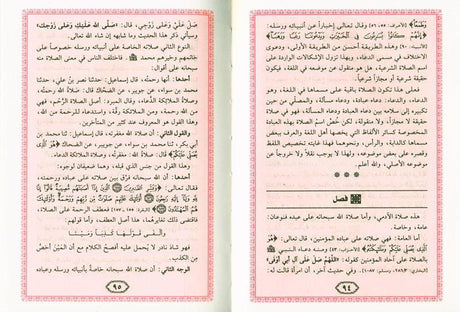 وَطَمَعًا﴾ [الأعراف: ٥٥، ٥٦] وقال تعالى إخباراً عن أنبيائه ورسله
﴿إِنَّهُمْ كَانُوا يُسَارِعُونَ فِي الْخَيْرَاتِ وَيَدْعُونَنَا رَغَبًا وَرَهَبًا﴾
[الأنبياء: ٩٠] وهذه الطريقة أحسن من الطريقة الأولى، ودعوى
الاختلاف في مسمى الدعاء، وبهذا تزول الإشكالات الواردة على
اسم الصلاة الشرعية، هل هو منقول عن موضوعه في اللغة، فيكون
حقيقة شرعية أو مجازاً شرعياً.
فعلى هذا تكون الصلاة باقية على مسماها في اللغة، وهو
الدعاء، والدعاء: دعاء عبادة، ودعاء مسألة، والمصلّي من حين
تكبيره إلى سلامه بين دعاء العبادة ودعاء المسألة، فهو في صلاة
حقيقة لا مجازاً، ولا منقولة، لكن خُصّ اسم الصلاة بهذه العبادة
المخصوصة كسائر الألفاظ التي يخصها أهل اللغة والعرف ببعض
مسماها كالدابة، والرأس، ونحوهما فهذا غايته تخصيص اللفظ
وقصره على بعض موضوعه، ولهذا لا يوجب نقلاً ولا خروجاً عن
موضوعه الأصلي، والله أعلم.
* * *
فصل
هذه صلاة الآدمي، وأما صلاة الله سبحانه على عبده فنوعان:
عامة وخاصة.
أما العامة: فهي صلاته على عباده المؤمنين، قال تعالى: ﴿هُوَ
الَّذِي يُصَلِّي عَلَيْكُمْ وَمَلَائِكَتُهُ﴾ [الأحزاب: ٤٣] ومنه دعاء النبي ﷺ
بالصلاة على آحاد المؤمنين كقوله: «اللَّهُمَّ صَلِّ عَلَى آلِ أَبِي أَوْفَى»
[البخاري: ، مسلم: ]. وفي حديث آخر، أن امرأة قالت له:
٩٤
صَلِّ عَلَيَّ وَعَلَى زَوْجِي، قال: «صَلَّى اللهُ عَلَيْكِ وَعَلَى زَوْجِكِ»
وسيأتي ذكر هذا الحديث وما شابهه إن شاء الله تعالى.
النوع الثاني: صلاته الخاصة على أنبيائه ورسله خصوصاً على
خاتمهم وخيرهم محمد ﷺ، فاختلف الناس في معنى الصلاة منه
سبحانه على أقوال:
أحدها: أنها رحمته، قال إسماعيل: حدثنا نصر بن علي، حدثنا
محمد بن سواء، عن جويبر، عن الضحاك قال: صلاة الله رحمته،
وصلاة الملائكة الدُّعاء، وقال المبرد: أصل الصلاة الرَّحم، فهي
من الله رحمة، ومن الملائكة رقة، واستدعاء للرحمة من الله،
وهذا القول هو المعروف عند كثير من المتأخرين.
والقول الثاني: أن صلاة الله مغفرته، قال إسماعيل: ثنا محمد بن
أبي بكر، ثنا محمد بن سواء، عن جويبر، عن الضحاك: ﴿هُوَ الَّذِي
يُصَلِّي عَلَيْكُمْ﴾ قال: صلاة الله: مغفرته، وصلاة الملائكة الدعاء.
وهذا القول هو من جنس الذي قبله، وهما ضعيفان لوجوه:
أحدها: أن الله سبحانه فرّق بين صلاته على عباده، ورحمته،
فقال تعالى: ﴿وَبَشِّرِ الصَّابِرِينَ الَّذِينَ إِذَا أَصَابَتْهُمْ مُصِيبَةٌ قَالُوا إِنَّا
لِلَّهِ وَإِنَّا إِلَيْهِ رَاجِعُونَ أُولَئِكَ عَلَيْهِمْ صَلَوَاتٌ مِنْ رَبِّهِمْ وَرَحْمَةٌ وَأُولَئِكَ
هُمُ الْمُهْتَدُونَ﴾ [البقرة: ١٥٥ - ١٥٧] فعطف الرحمة على الصلاة،
فاقتضى ذلك تغايرهما، هذا أصل العطف، وأما قولهم:
وَأَلْفَى قَوْلَهَا كَذِبًا وَمَيْنَا
فهو شاذ نادر لا يُحمل عليه أفصحُ الكلام مع أن المَيْنَ أخصّ من
الكذب.
الوجه الثاني: أن صلاة الله سبحانه خاصة بأنبيائه ورسله وعباده
٩٥